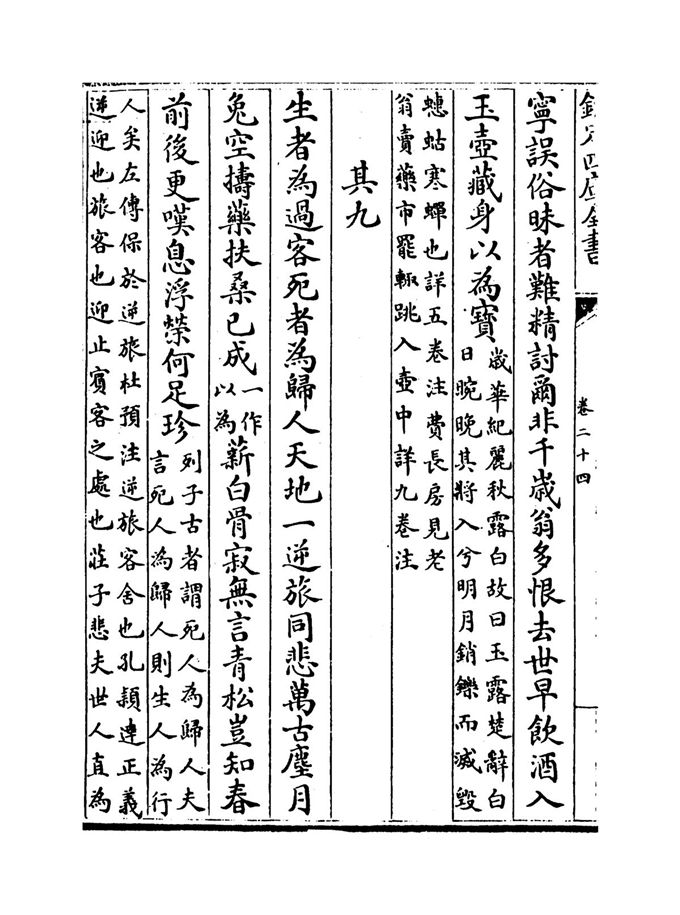 欽定四庫全書
卷二十四
寧誤俗昧者難精討爾非千歲翁多恨去世早飲酒入
玉壺藏身以為寶
歲華紀麗秋露白故曰玉露楚辭白
日晼晚其將入兮明月銷鑠而減毀
蟪蛄寒蟬也詳五卷注費長房見老
翁賣藥市罷輙跳入壺中詳九卷注
其九
生者為過客死者為歸人天地一逆旅同悲萬古塵月
兔空擣藥扶桑已成
一作
以為
薪白骨寂無言青松豈知春
前後更嘆息浮榮何足珍
列子古者謂死人為歸人夫
言死人為歸人則生人為行
人矣左傳保於逆旅杜預注逆旅客舍也孔穎達正義
逆迎也旅客也迎止賓客之處也莊子悲夫世人直為